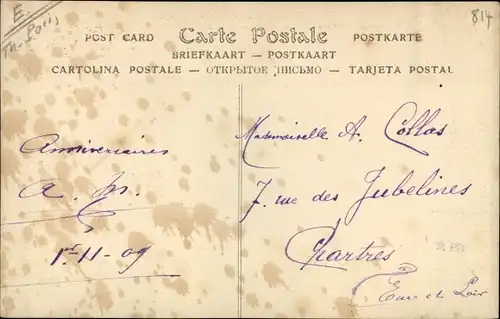 E.
Th. Paris
814
POST CARD Carte Postale POSTKARTE
BRIEFKAART — POSTKAART
CARTOLINA POSTALE — ОТКРЫТОЕ ПИСЬМО — TARJETA POSTAL
Anniversaires
a. p.
1er-11-09
Mademoiselle A. Collas
7, rue des Jubelines
Chartres
Eure et Loir